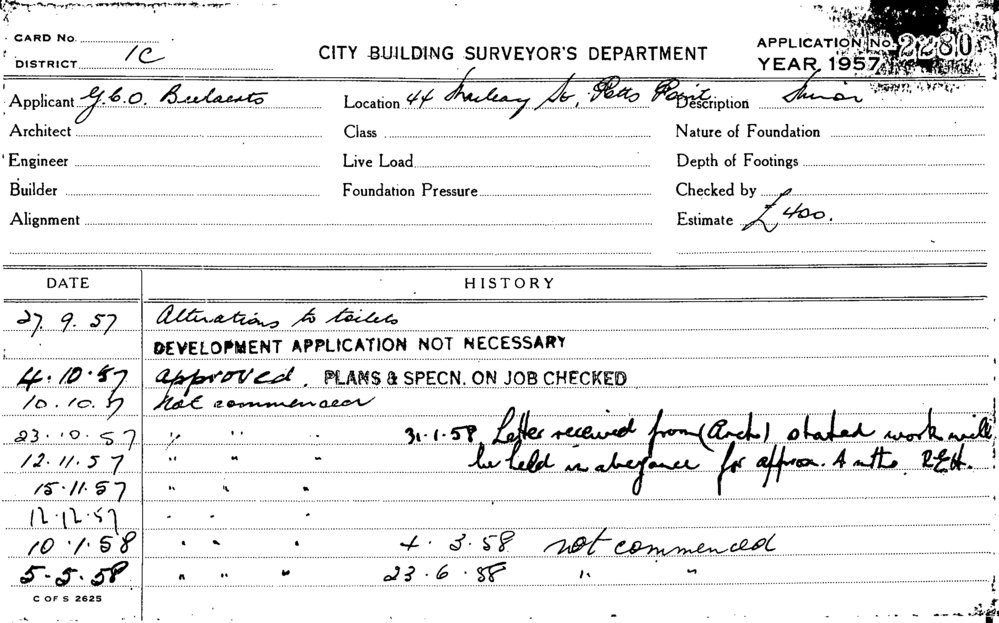 CARD No.
DISTRICT 1C
CITY BUILDING SURVEYOR'S DEPARTMENT
APPLICATION No. 2280
YEAR, 1957
Applicant G.C.O. Location 44 St, Potts Point Description Minor
Architect Class Nature of Foundation
Engineer Live Load Depth of Footings
Builder Foundation Pressure Checked by
Alignment Estimate £400.
DATE HISTORY
27. 9. 57 Alterations to toilets
DEVELOPMENT APPLICATION NOT NECESSARY
4. 10. 57 approved. PLANS & SPECN. ON JOB CHECKED
10. 10. 57 Not commenced
23. 10. 57 " " " 31.1.58 Letter received from (Arch) stated work will
12. 11. 57 " " " be held in abeyance for approx. 4 mths. R.E.H.
15. 11. 57 " " "
12. 12. 57 " "
10. 1. 58 " " " 4. 3. 58 not commenced
5. 5. 58 " " " 23. 6. 58 " "
C OF S 2625